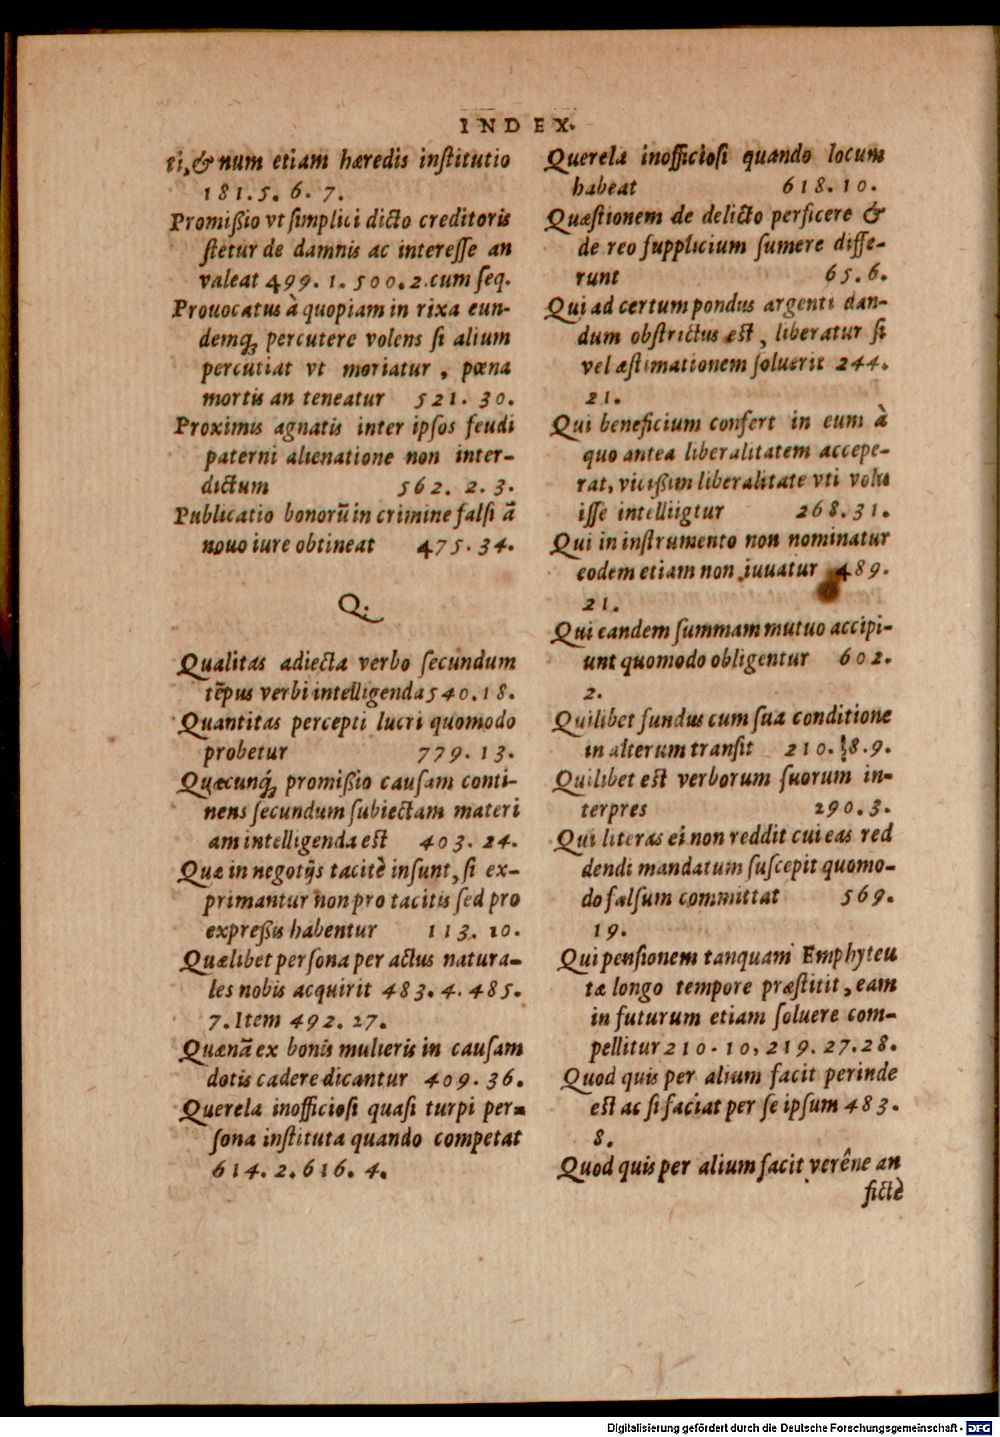 INDEX.
ti, & num etiam hæredis inſtitutio
181.5.6.7.
Promißio vt ſimplici dicto creditoris
ſtetur de damnis ac intereſſe an
valeat 499.1.500.2.cum ſeq.
Prouocatus à quopiam in rixa eun-
demq́; percutere volens ſi alium
percutiat vt moriatur, pœna
mortis an teneatur 521.30.
Proximis agnatis inter ipſos feudi
paterni alienatione non inter-
dictum 562.2.3.
Publicatio bonorū in crimine falſi ā
nouo iure obtineat 475.34.
Q.
Qualitas adiecta verbo ſecundum
tēpus verbi intelligenda 540.18.
Quantitas percepti lucri quomodo
probetur 779.13.
Quæcunq́; promißio cauſam conti-
nens ſecundum ſubiectam materi
am intelligenda eſt 403.24.
Quæ in negotijs tacitè inſunt, ſi ex-
primantur non pro tacitis ſed pro
expreßis habentur 113.10.
Quælibet perſona per actus natura-
les nobis acquirit 483.4.485.
7.Item 492.27.
Quænā ex bonis mulieris in cauſam
dotis cadere dicantur 409.36.
Querela inofficioſi quaſi turpi per-
ſona inſtituta quando competat
614.2.616.4.
Querela inofficioſi quando locum
habeat 618.10.
Quæſtionem de delicto perficere &
de reo ſupplicium ſumere diffe-
runt 65.6.
Qui ad certum pondus argenti dan-
dum obſtrictus eſt, liberatur ſi
vel æſtimationem ſoluerit 244.
21.
Qui beneficium confert in eum à
quo antea liberalitatem accepe-
rat, vicißim liberalitate vti volu
iſſe intelliigtur 268.31.
Qui in inſtrumento non nominatur
eodem etiam non iuuatur 489.
21.
Qui eandem ſummam mutuo accipi-
unt quomodo obligentur 602.
2.
Quilibet fundus cum ſua conditione
in alterum tranſit 210.8.9.
Quilibet eſt verborum ſuorum in-
terpres 290.3.
Qui literas ei non reddit cui eas red
dendi mandatum ſuſcepit quomo-
do falſum committat 569.
19.
Qui penſionem tanquam Emphyteu
tæ longo tempore præſtitit, eam
in futurum etiam ſoluere com-
pellitur 210.10, 219.27.28.
Quod quis per alium facit perinde
eſt ac ſi faciat per ſe ipſum 483.
8.
Quod quis per alium facit verêne an
fictè
Digitalisierung gefördert durch die Deutsche Forschungsgemeinschaft - DFG